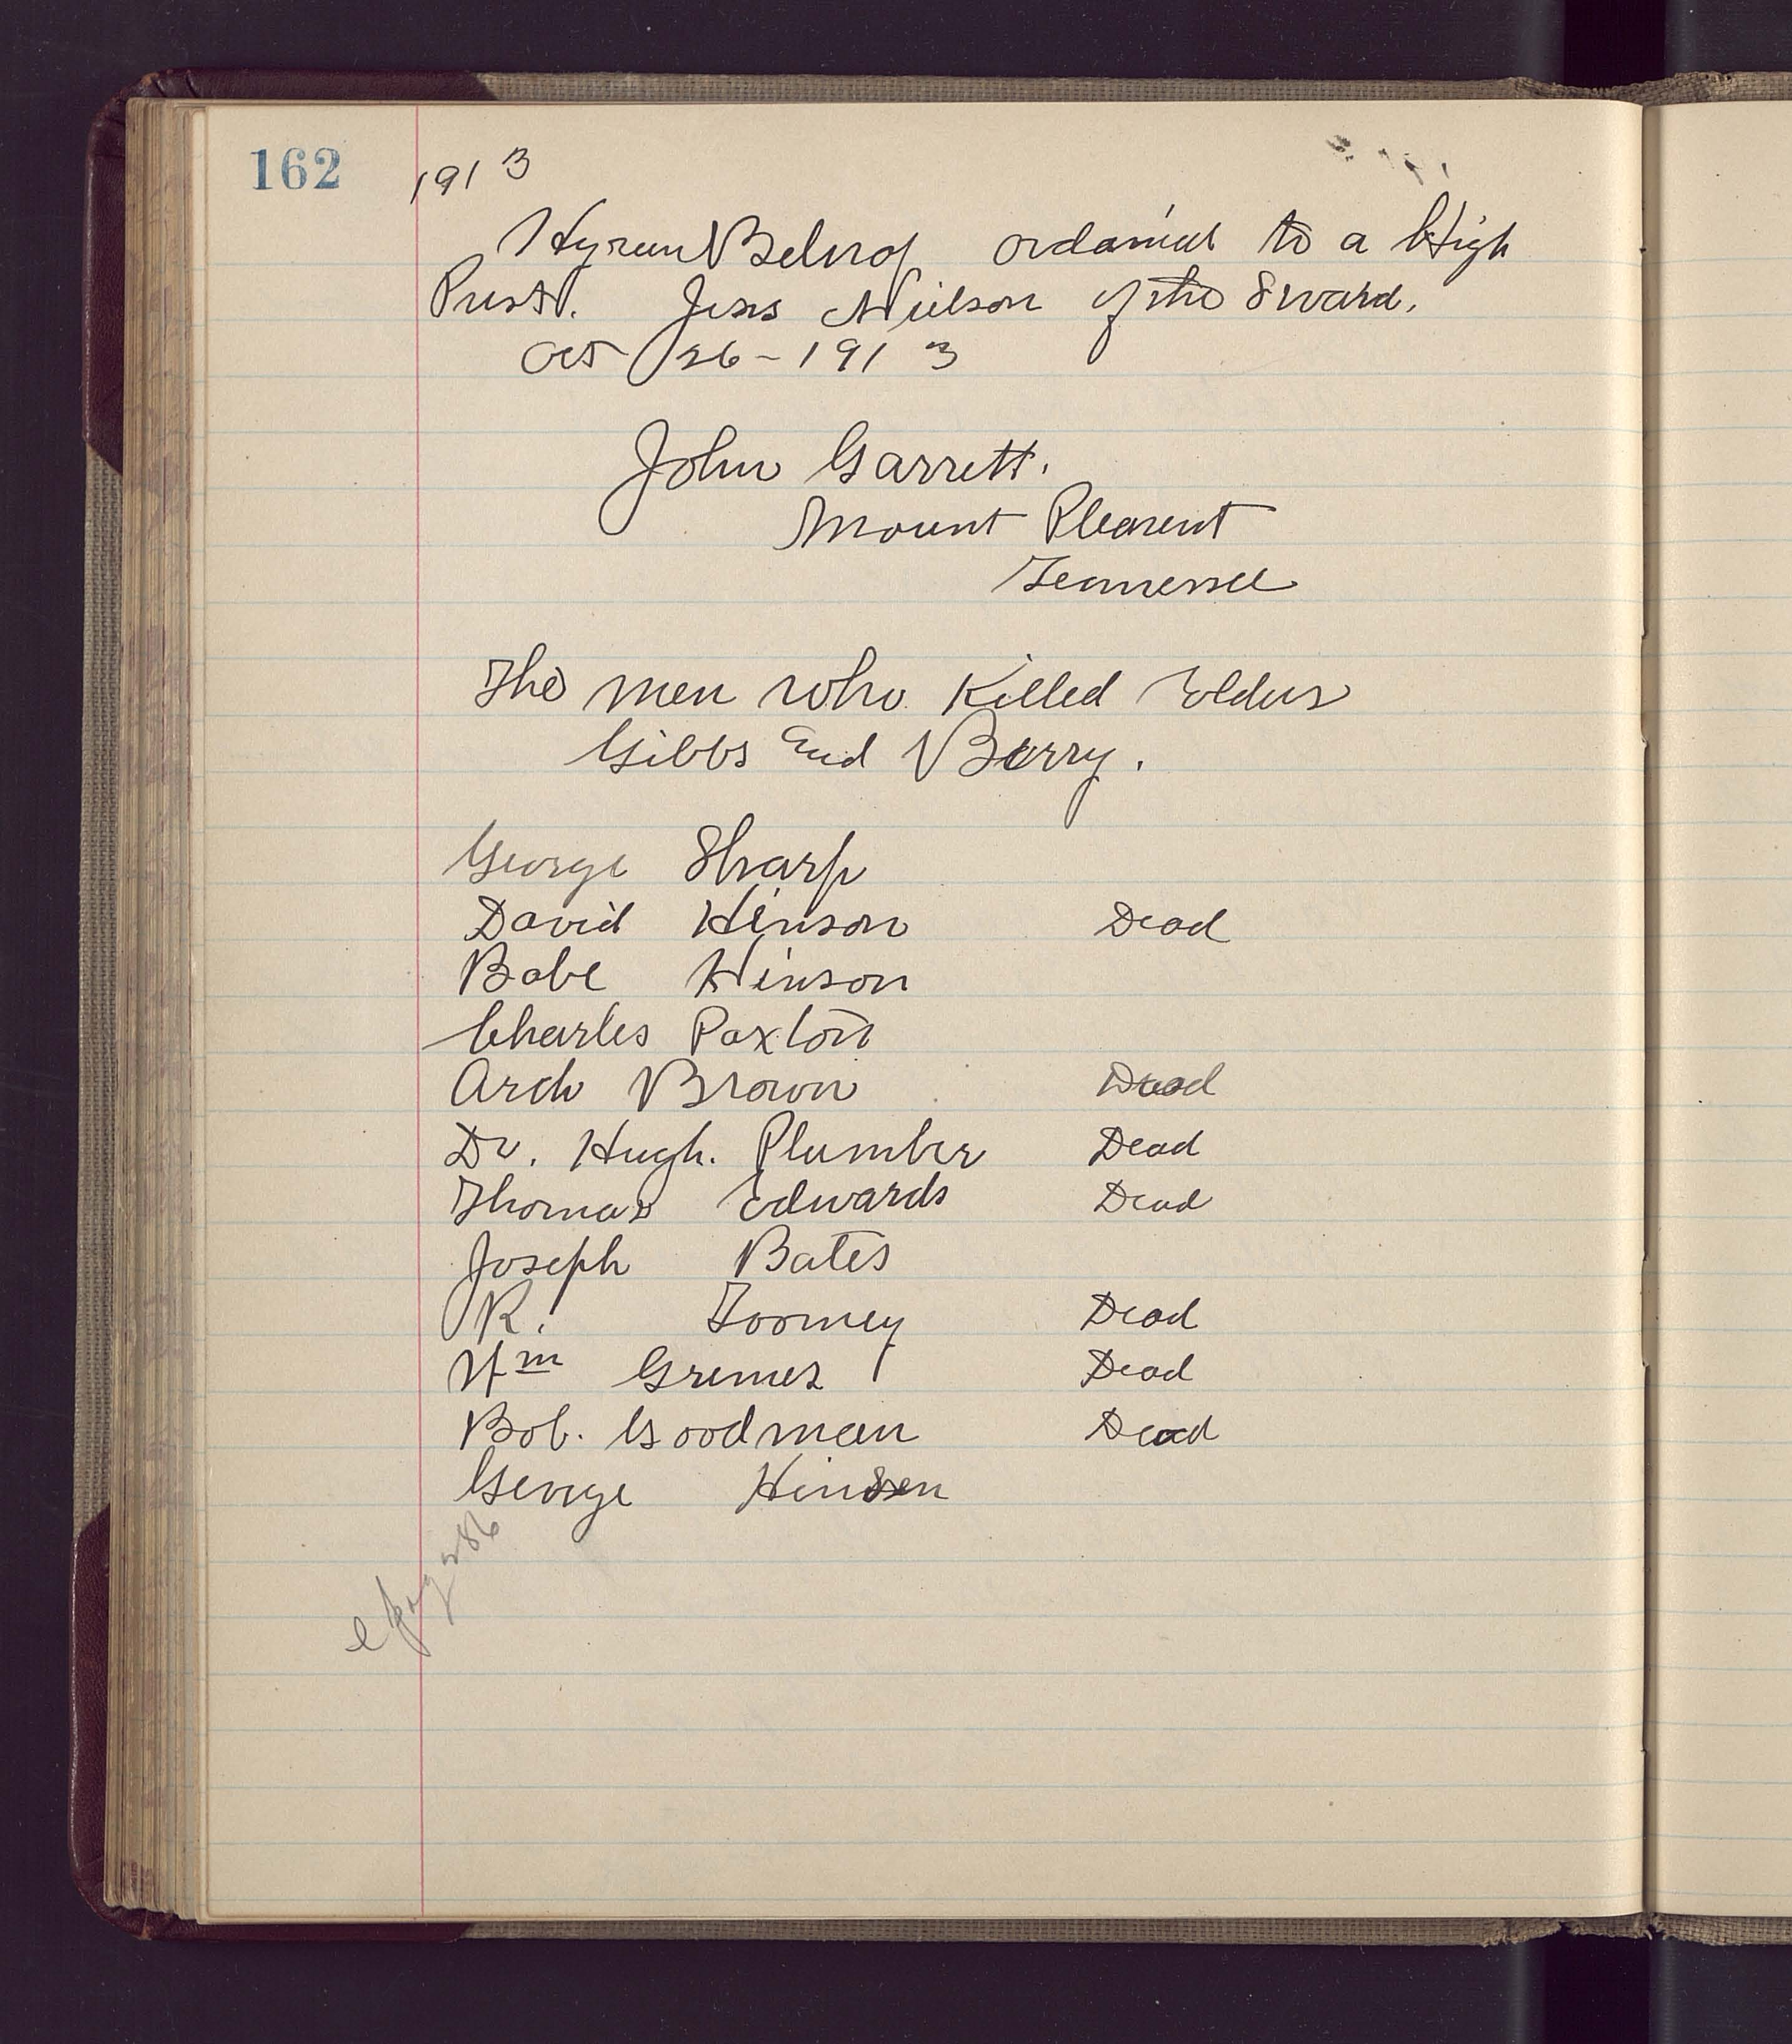 162
1913
Hyrum Belnap ordained to a High
Priest. Jens Nielson of the 8 ward.
Oct 26 - 1913
John Garrett.
Mount Pleasent
Tennessee
The men who Killed Elders
Gibbs and Berry.
George Sharp
David Hinson Dead
Babe Hinson
Charles Paxton
Arch Brown Dead
Dr. Hugh. Plumber Dead
Thomas Edwards Dead
Joseph Bates
R. Toomey Dead
Wm Grimes Dead
Bob. Goodman Dead
George Hinsen
page 286